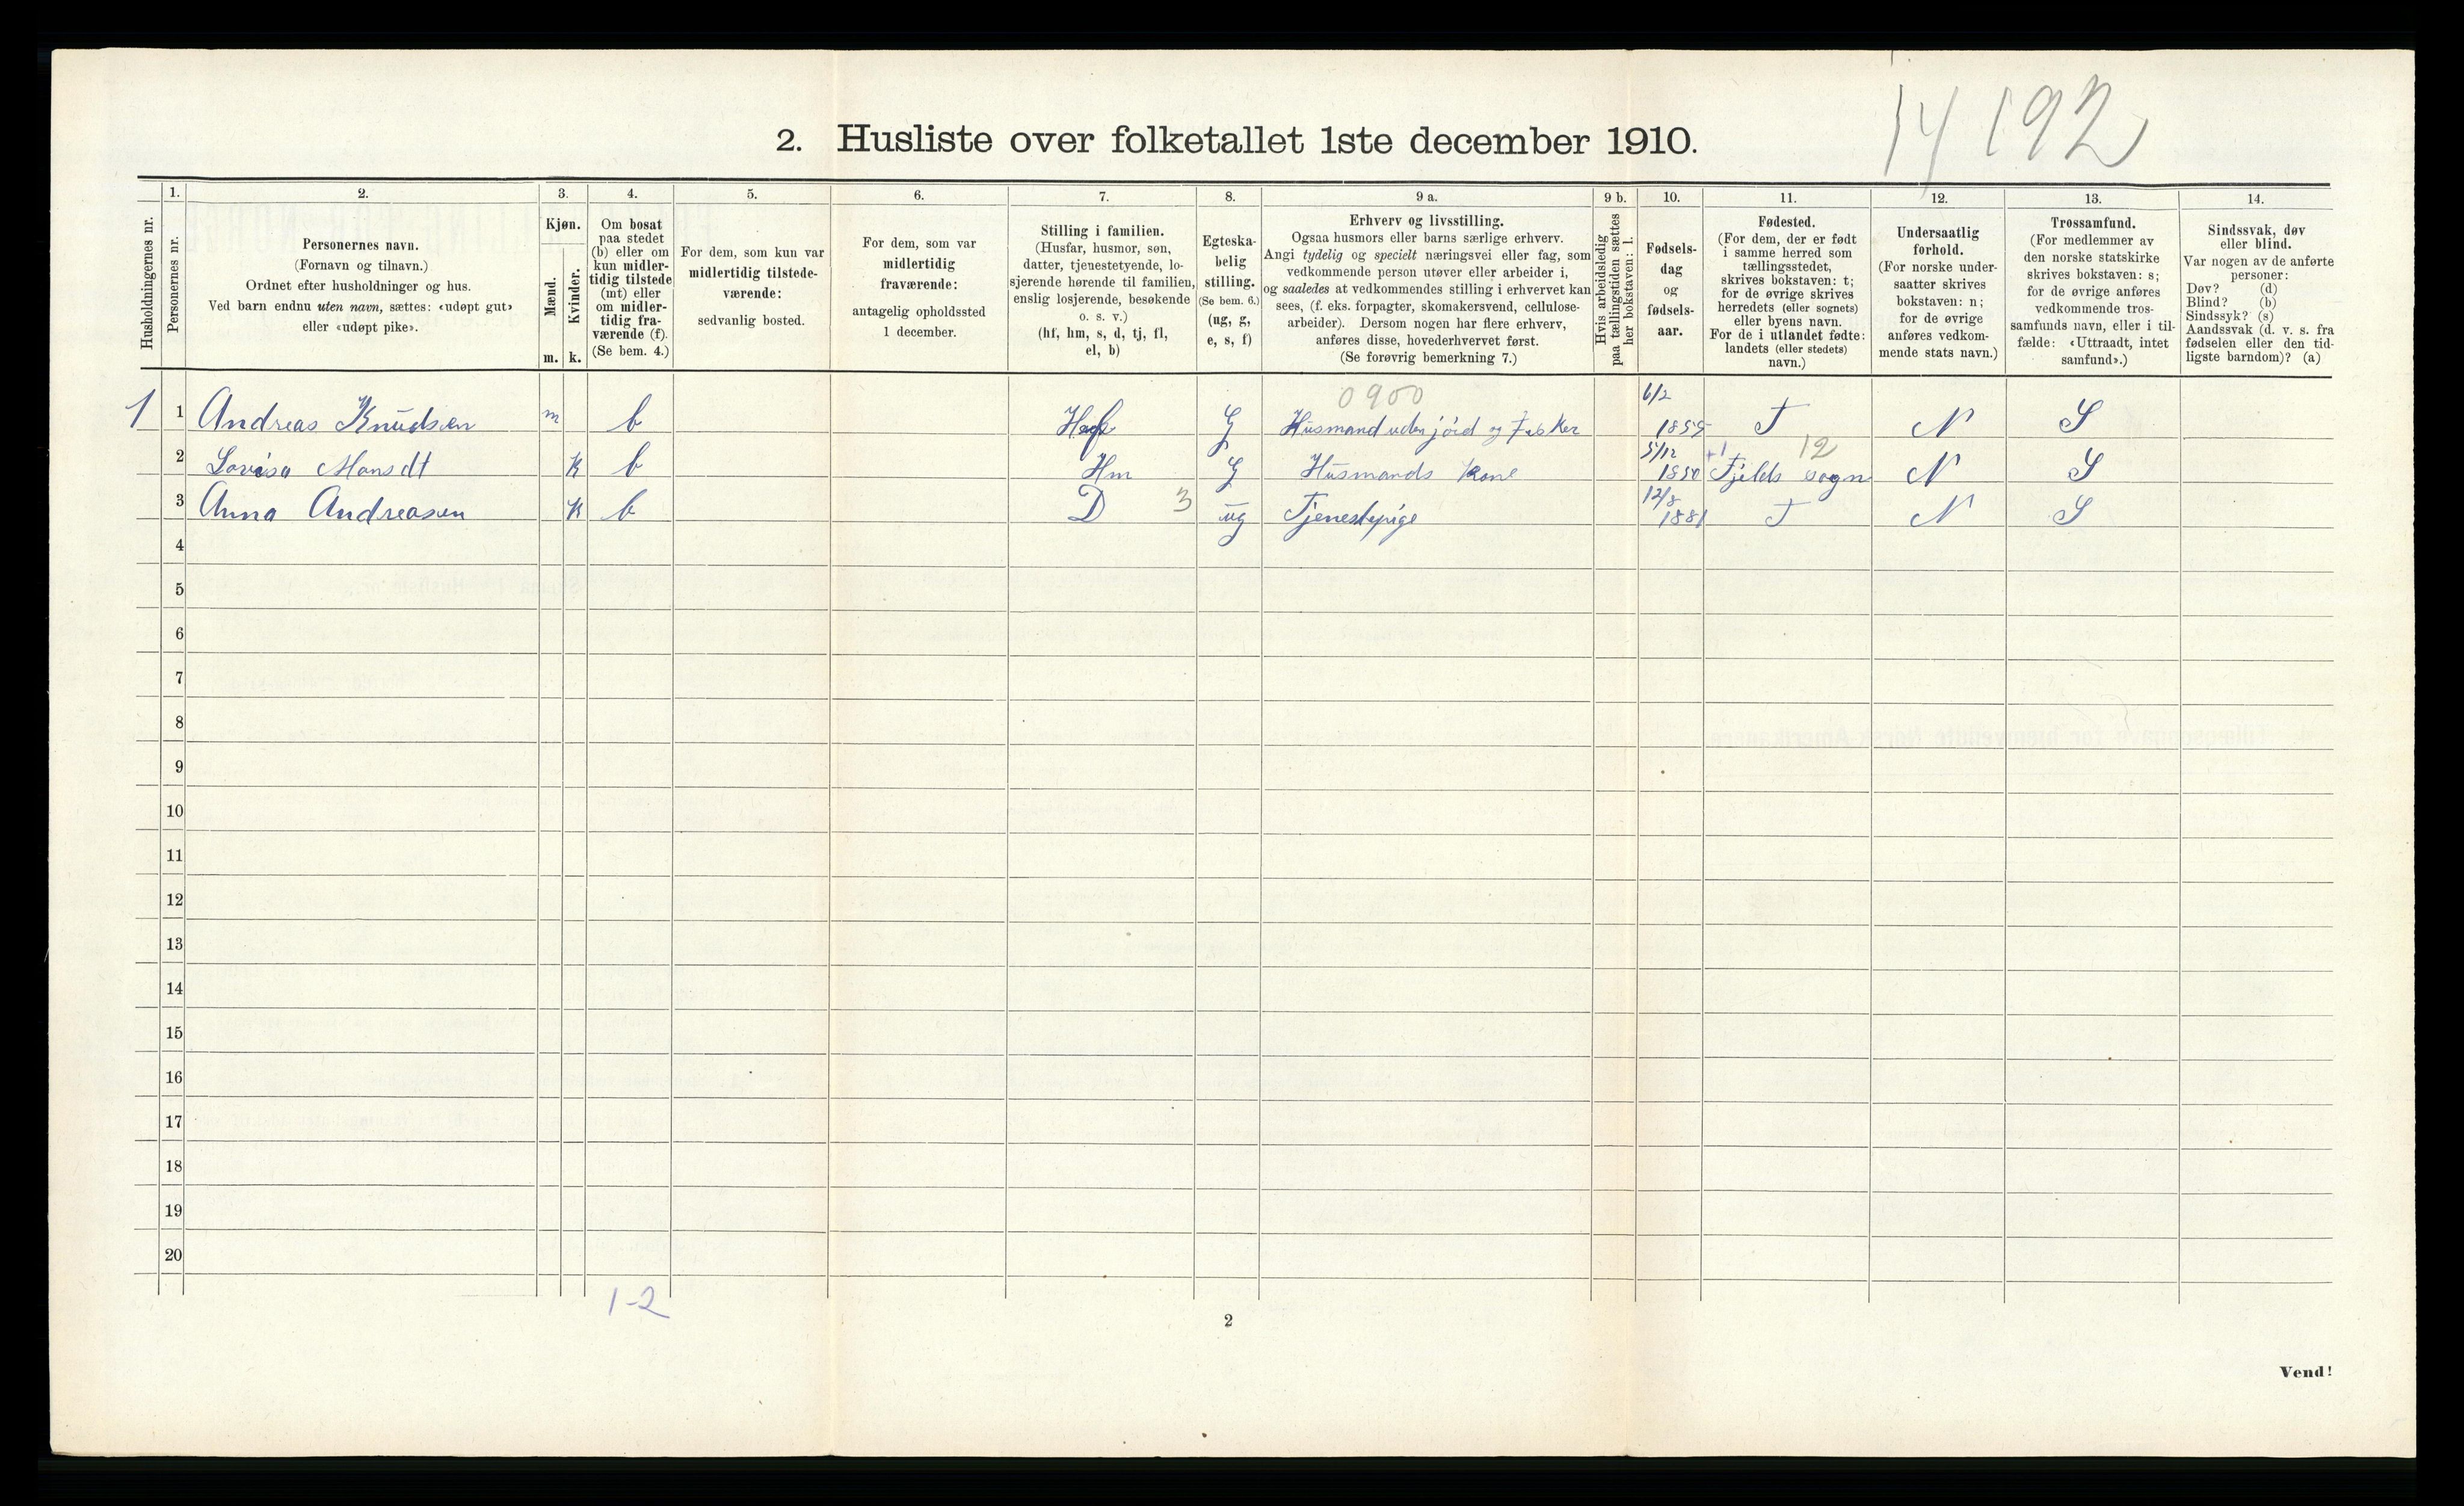 14 192
2. Husliste over folketallet 1ste december 1910.
Husholdningernes nr.
1.
Personernes nr.
2.
Personernes navn.
(Fornavn og tilnavn.)
Ordnet efter husholdninger og hus.
Ved barn endnu uten navn, sættes: «udøpt gut»
eller «udøpt pike».
3.
Kjøn.
Mænd.
m.
Kvinder.
k.
4.
Om bosat
paa stedet
(b) eller om
kun midler-
tidig tilstede
(mt) eller
om midler-
tidig fra-
værende (f).
(Se bem. 4.)
5.
For dem, som kun var
midlertidig tilstede-
værende:
sedvanlig bosted.
6.
For dem, som var
midlertidig
fraværende:
antagelig opholdssted
1 december.
7.
Stilling i familien.
(Husfar, husmor, søn,
datter, tjenestetyende, lo-
sjerende hørende til familien,
enslig losjerende, besøkende
o. s. v.)
(hf, hm, s, d, tj, fl,
el, b)
8.
Egteska-
belig
stilling.
(Se bem. 6.)
(ug, g,
e, s, f)
9 a.
Erhverv og livsstilling.
Ogsaa husmors eller barns særlige erhverv.
Angi tydelig og specielt næringsvei eller fag, som
vedkommende person utøver eller arbeider i,
og saaledes at vedkommendes stilling i erhvervet kan
sees, (f. eks. forpagter, skomakersvend, cellulose-
arbeider). Dersom nogen har flere erhverv,
anføres disse, hovederhvervet først.
(Se forøvrig bemerkning 7.)
9 b.
Hvis arbeidsledig
paa tællingstiden sættes
her bokstaven: l.
10.
Fødsels-
dag
og
fødsels-
aar.
11.
Fødested.
(For dem, der er født
i samme herred som
tællingsstedet,
skrives bokstaven: t;
for de øvrige skrives
herredets (eller sognets)
eller byens navn.
For de i utlandet fødte:
landets (eller stedets)
navn.)
12.
Undersaatlig
forhold.
(For norske under-
saatter skrives
bokstaven: n;
for de øvrige
anføres vedkom-
mende stats navn.)
13.
Trossamfund.
(For medlemmer av
den norske statskirke
skrives bokstaven: s;
for de øvrige anføres
vedkommende tros-
samfunds navn, eller i til-
fælde: «Uttraadt, intet
samfund».)
14.
Sindssvak, døv
eller blind.
Var nogen av de anførte
personer:
Døv? (d)
Blind? (b)
Sindssyk? (s)
Aandssvak (d. v. s. fra
fødselen eller den tid-
ligste barndom)? (a)
0900
1 1 Andreas Knudsen m b Hf G Husmand uden jord og Fisker 6/2 1855 T N S
12
2 Lovisa Monsdt K b Hm G Husmands kone 5/12 1850 Fjelds sogn N S
3 Anna Andreasen K b D 3 ug Tjenestepige 12/8 1881 T N S
4
5
6
7
8
9
10
11
12
13
14
15
16
17
18
19
20
1-2
2
Vend!